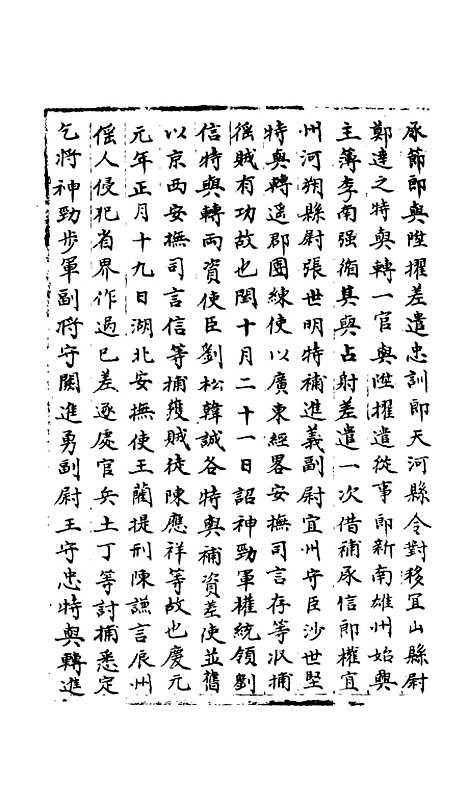 承節郎與陞擢差遣忠訓郎天河縣令對移宜山縣尉
鄭達之特與轉一官與陞擢遣從事郎新南雄州始興
主簿李南强循其與占射差遣一次借補承信郎權宜
州河朔縣尉張世明特補進義副尉宜州守臣沙世堅
特與轉遥郡團練使以廣東經畧安撫司言存等収捕
徭賊有功故也閏十月二十一日詔神勁軍權統領劉
信特與轉兩資使臣劉松韓誠各特與補資差使並舊
以京西安撫司言信等捕獲賊徒陳應祥等故也慶元
元年正月十九日湖北安撫使王藺提刑陳謙言辰州
傜人侵犯省界作過已差逐處官兵土丁等討捕悉定
乞將神勁步軍副將守闕進勇副尉王守忠特與轉進